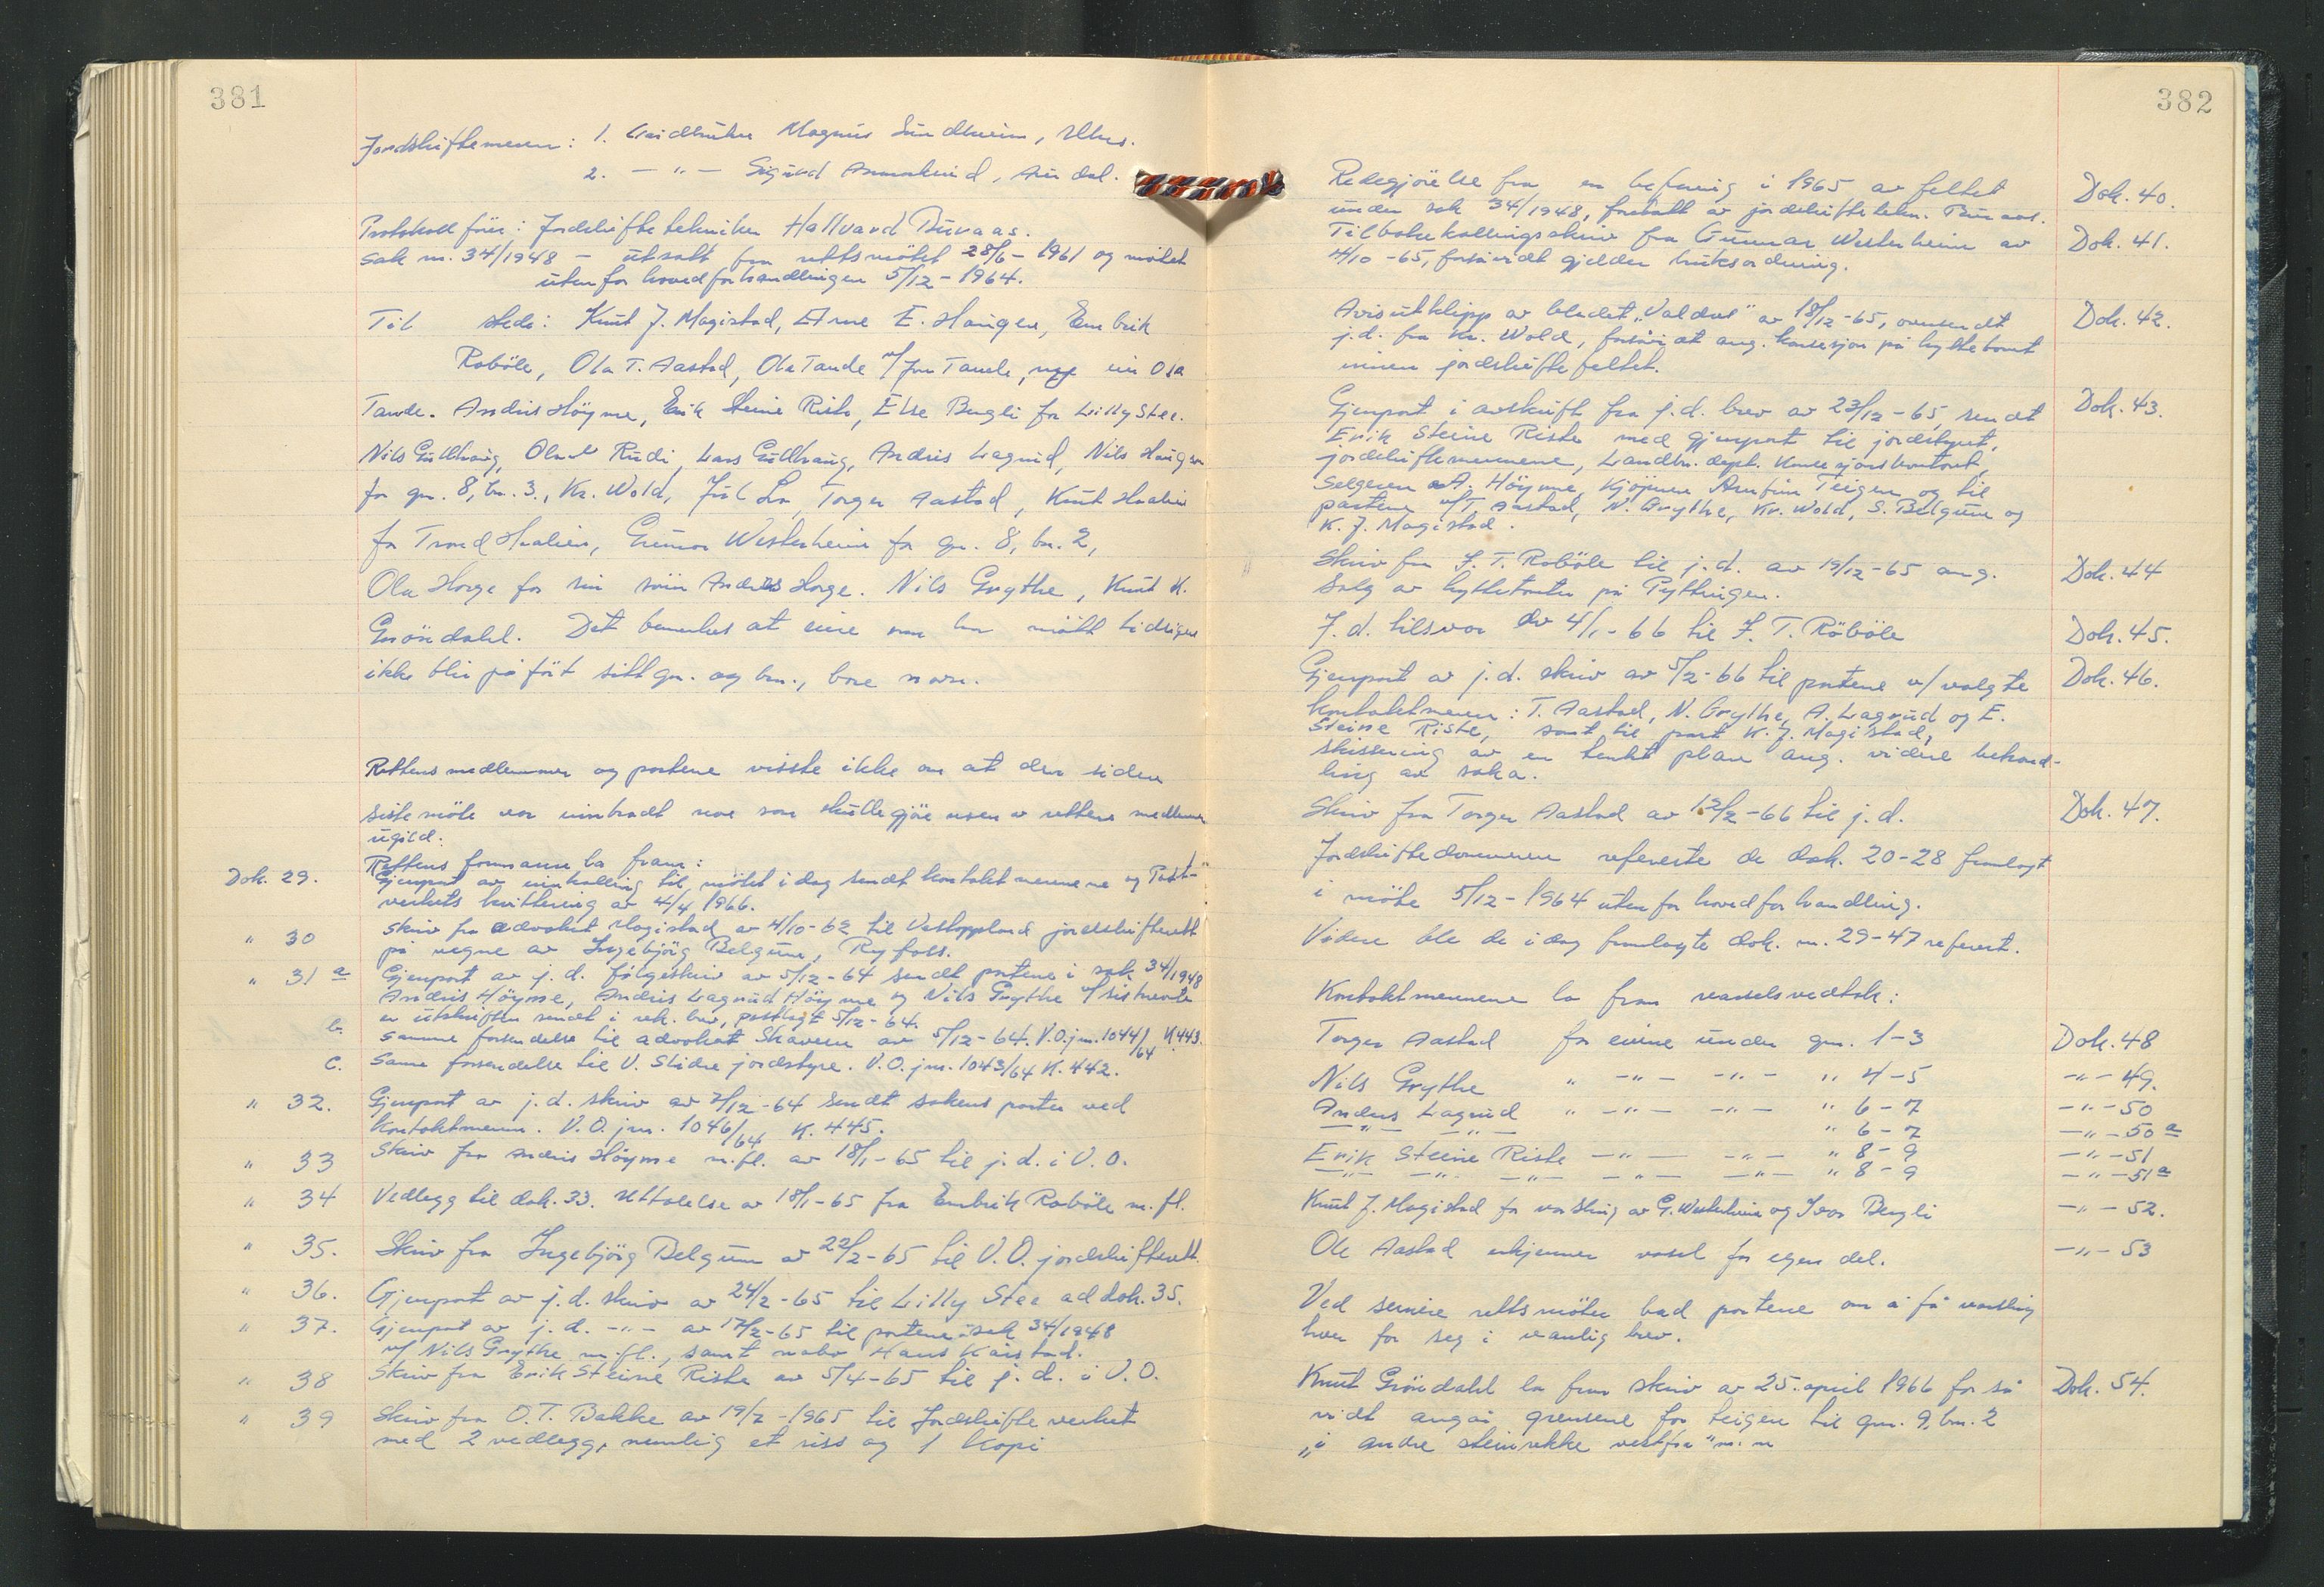 381
Jordskiftemenn: 1. Gårdbruker Magnus Sundheim,
2. — " — Sigurd
Protokollfører: Jordskiftetekniker Hallvard Buraas.
Sak nr. 34/1948 — utsatt fra rettsmötet 28/6 - 1961 og mötet
utenfor hovedforhandlingen 5/12 - 1964.
Til stede: Knut J. Magistad, Arne E. Haugen, Embrik
Roböle, Ola T. Aastad, Ola Tande v/ Jon Tande, Ola
Tande. Andris Höyme, Erik Steine Riste, Else Bergli for Lilly Stee.
Nils Gullhaug, Olaul Rudi, Lars Gullhaug, Andris Lagrud, Nils Haugen
for gn. 8, bn. 3., Kr. Wold, Torger Aastad, Knut Haalien
for Trond Haalien, Gunnar Westerheim for gn. 8, bn. 2,
Ola Horge for sin sönn Andris Horge. Nils Grythe, Knut K.
Gröndahl. Det bemerkes at eiere som har mött tidligere
ikke blir påfört sitt gn. og bn., bare navn.
Rettens medlemmer og partene visste ikke om at der siden
siste möte var inntradt noe som skulle gjöre noen av rettens medlemmer
ugild.
Rettens formann la fram:
Dok. 29. Gjenpart av innkalling til mötet i dag sendt kontaktmennene og Post-
verkets kvittering av 4/4 1966.
" 30 Skriv fra advokat Magistad av 4/10-62 til Vestoppland jordskifterett
på vegne av Ingebjörg Belgum, Ryfoss.
" 31 a Gjenpart av j.d. följeskriv av 5/12-64 sendt partene i sak 34/1948
Andris Höyme, Andris Lagrud Höyme og Nils Grythe v/ sistnevnte
er utskriften sendt i rek. brev, postlagt 5/12-64.
b. Samme forsendelse til advokat Skavern av 5/12-64. V.O.jnr. 1044/64 K.443.
c. Same forsendelse til V. Slidre jordstyre. V.O. jnr. 1043/64 K. 442.
" 32. Gjenpart av j.d. skriv av 7/12-64 sendt sakens parter ved
kontaktmenn. V.O. jnr. 1046/64 K. 445.
" 33 Skriv fra Andris Höyme m.fl. av 18/1-65 til j.d. i V.O.
" 34 Vedlegg til dok. 33. Uttalelse av 18/1-65 fra Embrik Roböle m.fl.
" 35. Skriv fra Ingebjörg Belgum av 22/2-65 til V.O. jordskifterett.
" 36. Gjenpart av j.d. skriv av 24/2-65 til Lilly Stee ad dok. 35.
" 37. Gjenpart av j.d. -"- av 17/2-65 til partene i sak 34/1948
v/ Nils Grythe m.fl., samt nabo Hans Kaistad.
" 38 Skriv fra Erik Steine Riste av 5/4-65 til j.d. i V.O.
" 39 Skriv fra O.T. Bakke av 19/7-1965 til Jordskifteverket
med 2 vedlegg, nemlig et riss og 1 kopi
382
Redegjörelse fra en befaring i 1965 av feltet Dok. 40.
under sak 34/1948, foretatt av jordskiftetekn. Buraas.
Tilbakekallingsskriv fra Gunnar Westerheim av Dok. 41.
4/10-65, forsåvidt gjelder bruksordning.
Avisutklipp av bladet „Valdres" av 18/12-65, oversendt Dok. 42.
j.d. fra Kr. Wold, forsåvidt ang. konsesjon på hyttetomt
innen jordskiftefeltet.
Gjenpart i avskrift fra j.d. brev av 23/12-65, sendt Dok. 43.
Erik Steine Riste med gjenpart til jordstyret,
jordskiftemennene, Landbr. dept. konsesjonskontoret,
selgeren A. Höyme, kjöperen Arnfinn Teigen og til
partene v/ T. Aastad, N. Grythe, Kr. Wold, S. Belgum og
K. J. Magistad.
" Skriv fra J. T. Roböle til j.d. av 19/12-65 ang. Dok. 44
salg av hyttetomter på Pyttingen.
J.d. tilsvar av 4/1-66 til J. T. Röböle Dok. 45.
Gjenpart av j.d. skriv av 5/2-66 til partene v/ valgte Dok. 46.
kontaktmenn: T. Aastad, N. Grythe, A. Lagrud og E.
Steine Riste, samt til part K. J. Magistad,
skissering av en tenkt plan ang. videre behand-
ling av saka.
Skriv fra Torger Aastad av 12/2-66 til j.d. Dok. 47.
Jordskiftedommeren refererte de dok. 20-28 framlagt
i möte 5/12-1964 utenfor hovedforhandling.
Videre ble de i dag framlagte dok. nr. 29-47 referert.
Kontaktmennene la fram varselsvedtak:
Torger Aastad for eiere under gnr. 1-3 Dok. 48
Nils Grythe " -"- -"- " 4-5 -"- 49.
Anders Lagrud " -"- -"- " 6-7 -"- 50
-"- -"- " 6-7 -"- 50 a
Erik Steine Riste -"- -"- " 8-9 -"- 51
-"- -"- -"- -"- -"- " 8-9 -"- 51a
Knut J. Magistad for varsling av G. Westerheim og Ivar Bergli -"- 52.
Ole Aastad erkjenner varsel for egen del. -"- 53
Ved senere rettsmöter bad partene om å få varsling
hver for seg i vanlig brev.
Knut Gröndahl la fram skriv av 25. april 1966 for så Dok. 54.
vidt angår grensene for teigen til gnr. 9, bn. 2
„i andre steinrekke vestfra" m.m